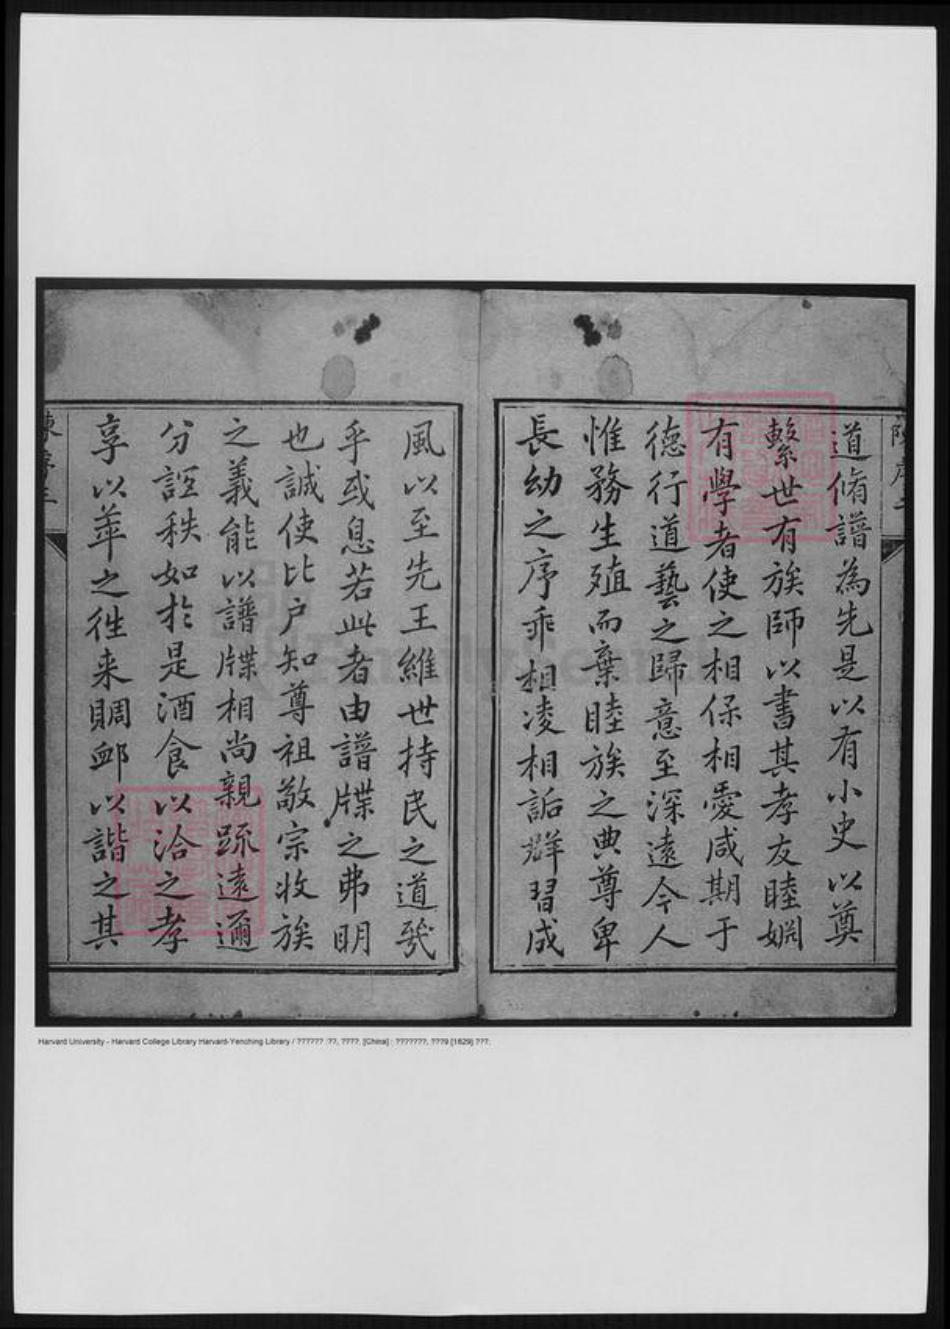 道脩譜為先是以有小史以奠
繫世有族師以書其孝友睦婣
有學者使之相保相愛咸期于
德行道藝之歸意至深遠今人
惟務生殖而棄睦族之典尊卑
長幼之序乖相凌相詬群習成
風以至先王維世持民之道幾
乎或息若此者由譜牒之弗明
也誠使比户知尊祖敬宗收族
之義能以譜牒相尚親疏遠邇
分誼秩如於是酒食以洽之孝
享以萃之徃来賙卹以諧之其
Harvard University - Harvard College Library Harvard-Yenching Library / ?????? :??, ????. [China] : ???????, ???9 [1629] ???.